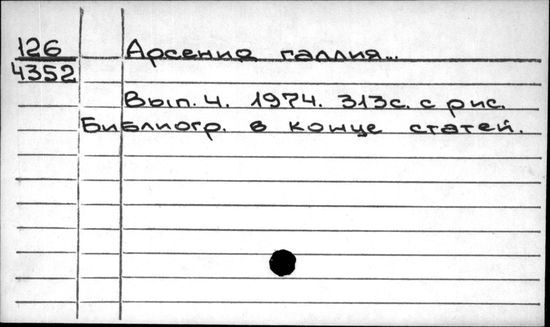 126 Арсенид галлия...
4352
Вып. 4. 1974. 313с. с рис.
Библиогр. в конце статей.